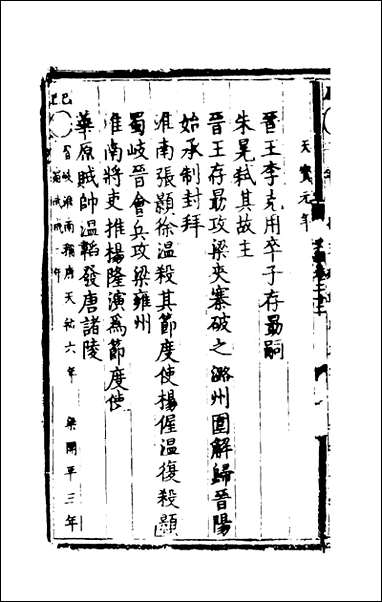 天寶元年
晉王李克用卒子存勗嗣
朱晃弒其故主
晉王存勗攻梁夾寨破之潞州圍解歸晉陽
始承制封拜
淮南張顥徐溫殺其節度使楊偓溫復殺顥
蜀岐晉會兵攻梁雍州
淮南將吏推楊隆演爲節度使
華原賊帥溫韜發唐諸陵
巳 晉岐淮南稱唐天祐六年 梁開平三年